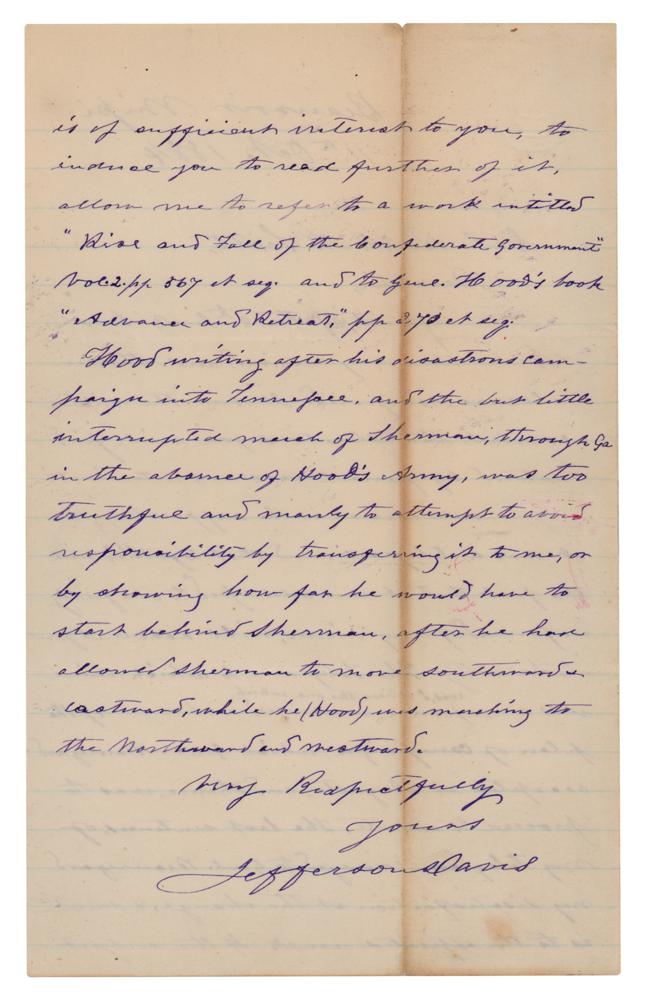 is of sufficient interest to you, to
induce you to read further of it,
allow me to refer to a work intitled
"Rise and Fall of the Confederate Government"
Vol. 2. pp 567 et seq. and to Genl. Hood's book
"Advance and Retreat," pp 270 et seq.
Hood writing after his disastrous cam-
paign into Tennessee, and the but little
interrupted march of Sherman, through Ga
in the absence of Hood's Army, was too
truthful and manly to attempt to avoid
responsibility by transferring it to me, or
by showing how far he would have to
start behind Sherman, after he had
allowed Sherman to move southward &
eastward, while he (Hood) was marching to
the Northward and westward.
Very Respectfully
Yours
Jefferson Davis